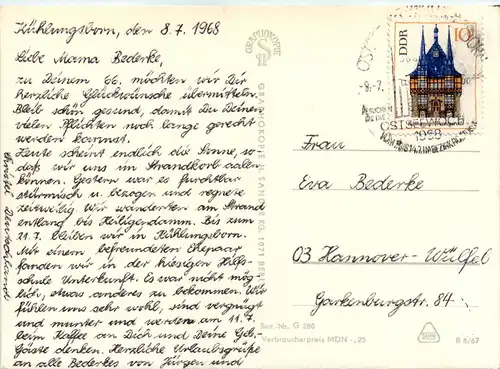 Kühlungsborn, den 8.7.1968
Liebe Mama Bederke,
zu Deinem 66. möchten wir Dir
herzliche Glückwünsche übermitteln.
Bleib schön gesund, damit Du Deinen
vielen Pflichten noch lange gerecht
werden kannst.
Heute scheint endlich die Sonne, so
daß wir uns im Strandkorb aalen
können. Gestern war es furchtbar
stürmisch u. bezogen und regnete
zeitweilig. Wir wanderten am Strand
entlang bis Heiligendamm. Bis zum
21.7. bleiben wir in Kühlungsborn.
Mit einem befreundeten Ehepaar
fanden wir in der hiesigen Hilfs-
schule Unterkunft. Es war nicht mög-
lich, etwas anderes zu bekommen. Wir
fühlen uns sehr wohl, sind vergnügt
und munter und werden am 11.7.
beim Kaffee an Dich und Deine Geb.
Gäste denken. Herzliche Urlaubsgrüße
an alle Bederkes von Jürgen und
Christel Deutschland
GRAPHOKOPIE
GRAPHOKOPIE H. SANDER KG, 1071 BERLIN
DDR
10
-9.-7.
OSTSEEWOCHE
1968
Frau
Eva Bederke
03 Hannover-Wülfel
Garkenburgstr. 84
Best.-Nr. G 280
Verbraucherpreis MDN -,25
B 8/67